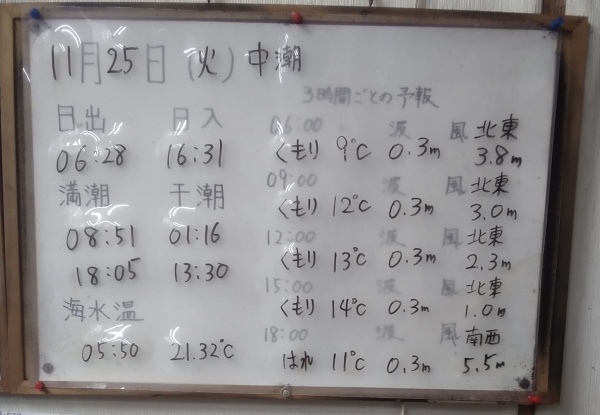 11月25日(火)中潮
日出 日入
06:28 16:31
満潮 干潮
08:51 01:16
18:05 13:30
海水温
05:50 21.32℃
3時間ごとの予報
06:00 波 風 北東
くもり 9℃ 0.3m 3.8m
09:00 波 風 北東
くもり 12℃ 0.3m 3.0m
12:00 波 風 北東
くもり 13℃ 0.3m 2.3m
15:00 波 風 北東
くもり 14℃ 0.3m 1.0m
18:00 波 風 南西
はれ 11℃ 0.3m 5.5m